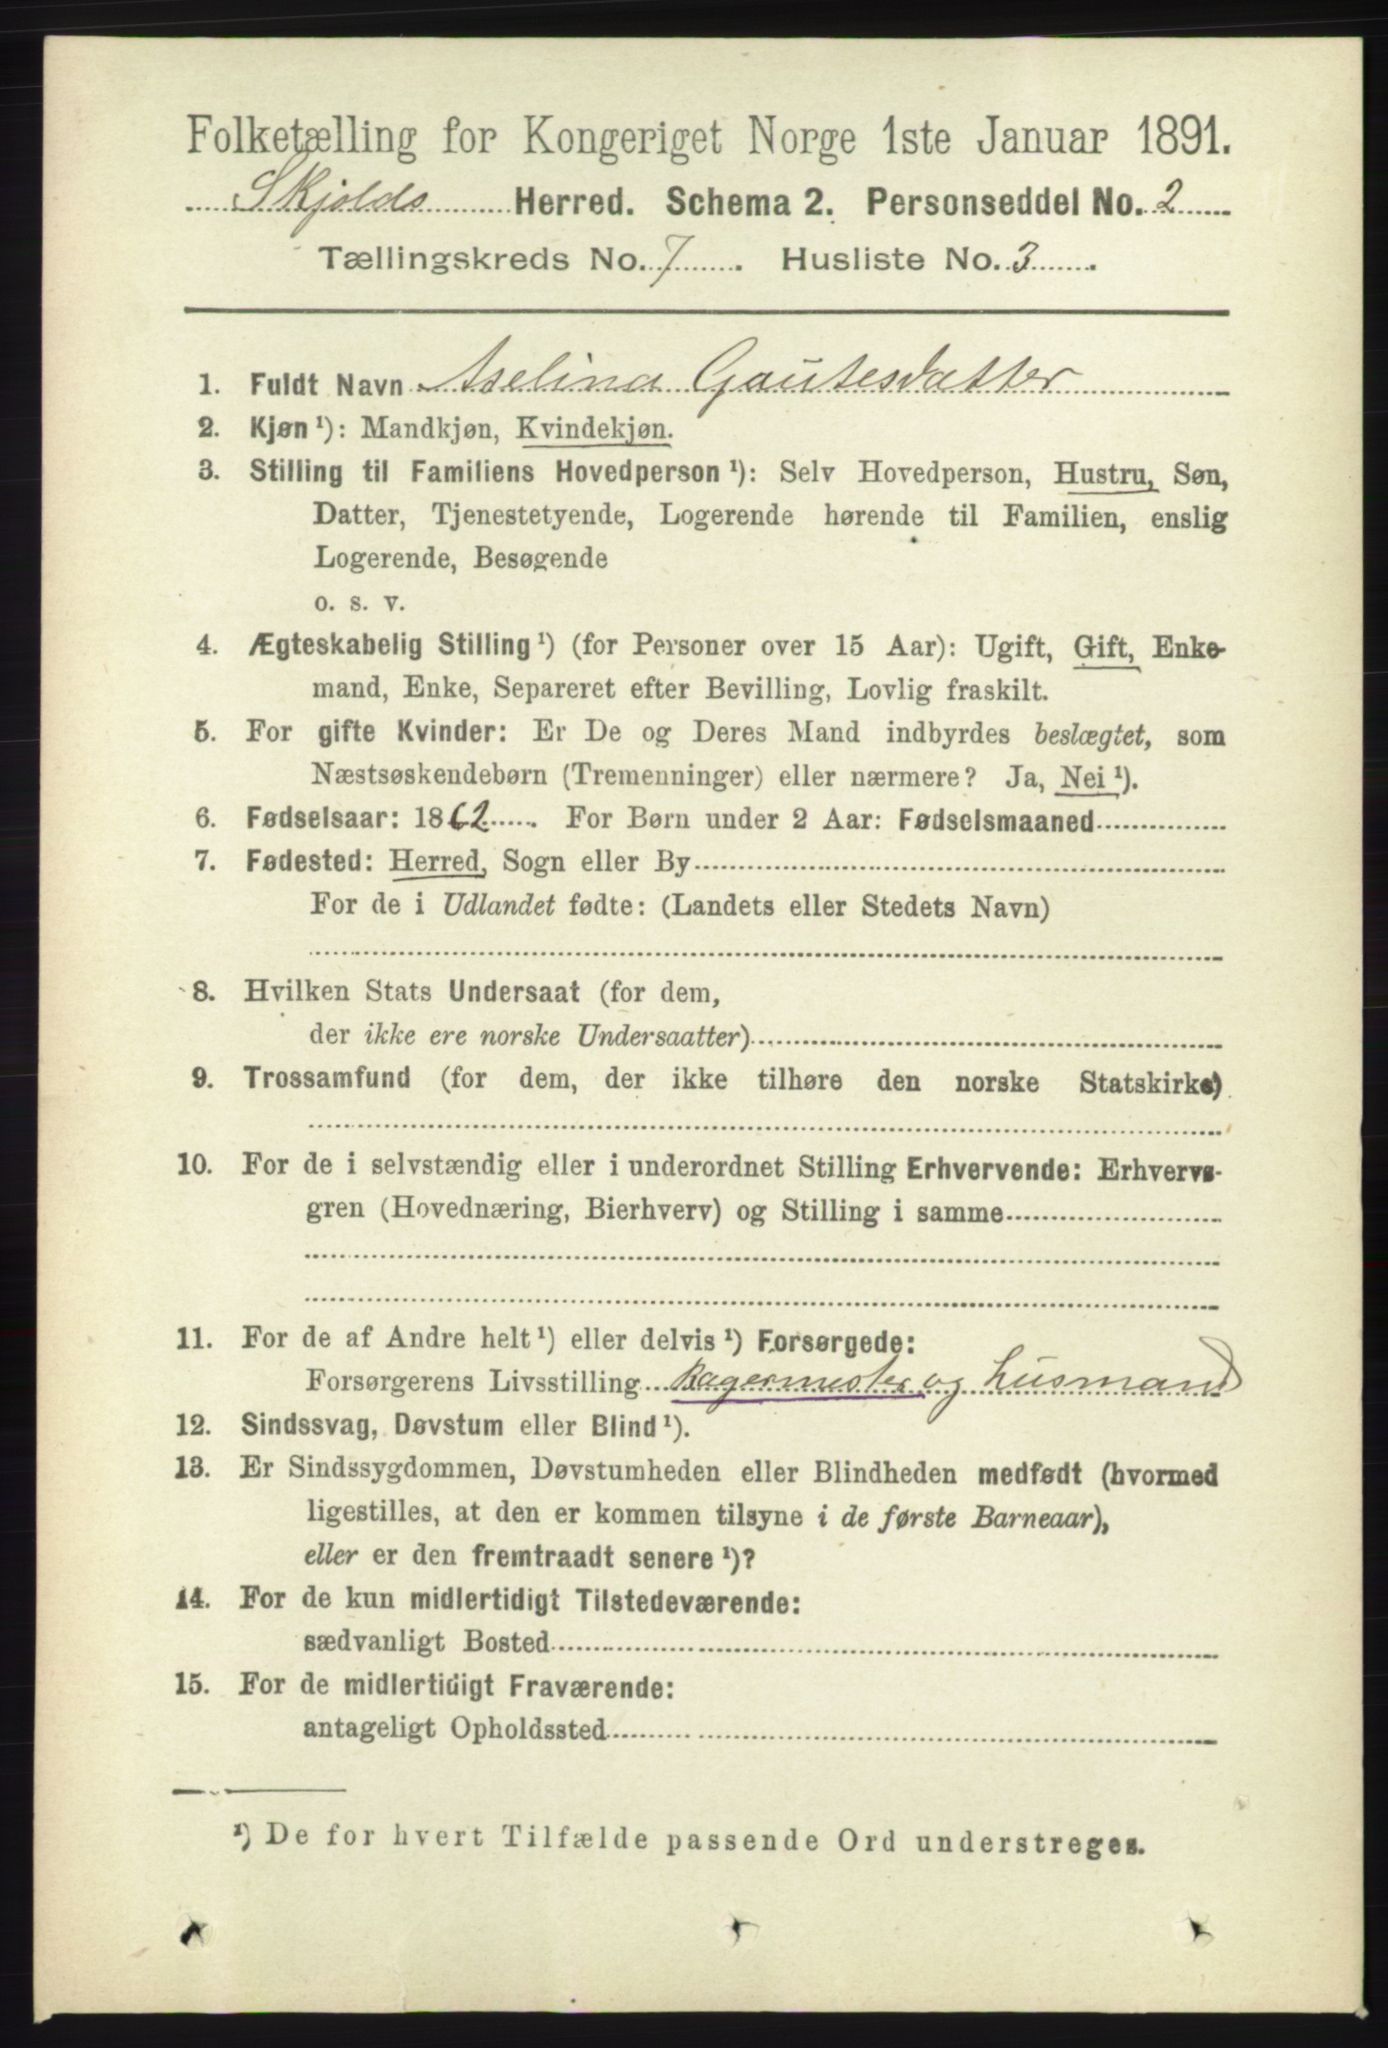 Folketælling for Kongeriget Norge 1ste Januar 1891.
Skjolds Herred. Schema 2. Personseddel No. 2
Tællingskreds No. 7. Husliste No. 3.
1. Fuldt Navn Aselina Gautesdatter
2. Kjøn ¹): Mandkjøn, Kvindekjøn.
3. Stilling til Familiens Hovedperson ¹): Selv Hovedperson, Hustru, Søn,
Datter, Tjenestetyende, Logerende hørende til Familien, enslig
Logerende, Besøgende
o. s. v.
4. Ægteskabelig Stilling ¹) (for Personer over 15 Aar): Ugift, Gift, Enke-
mand, Enke, Separeret efter Bevilling, Lovlig fraskilt.
5. For gifte Kvinder: Er De og Deres Mand indbyrdes beslægtet, som
Næstsøskendebørn (Tremenninger) eller nærmere? Ja, Nei ¹).
6. Fødselsaar: 1862. For Børn under 2 Aar: Fødselsmaaned
7. Fødested: Herred, Sogn eller By
For de i Udlandet fødte: (Landets eller Stedets Navn)
8. Hvilken Stats Undersaat (for dem,
der ikke ere norske Undersaatter)
9. Trossamfund (for dem, der ikke tilhøre den norske Statskirke)
10. For de i selvstændig eller i underordnet Stilling Erhvervende: Erhvervs-
gren (Hovednæring, Bierhverv) og Stilling i samme
11. For de af Andre helt ¹) eller delvis ¹) Forsørgede:
Forsørgerens Livsstilling Bagermester og Husmand
12. Sindssvag, Døvstum eller Blind ¹).
13. Er Sindssygdommen, Døvstumheden eller Blindheden medfødt (hvormed
ligestilles, at den er kommen tilsyne i de første Barneaar),
eller er den fremtraadt senere ¹)?
14. For de kun midlertidigt Tilstedeværende:
sædvanligt Bosted
15. For de midlertidigt Fraværende:
antageligt Opholdssted
¹) De for hvert Tilfælde passende Ord understreges.